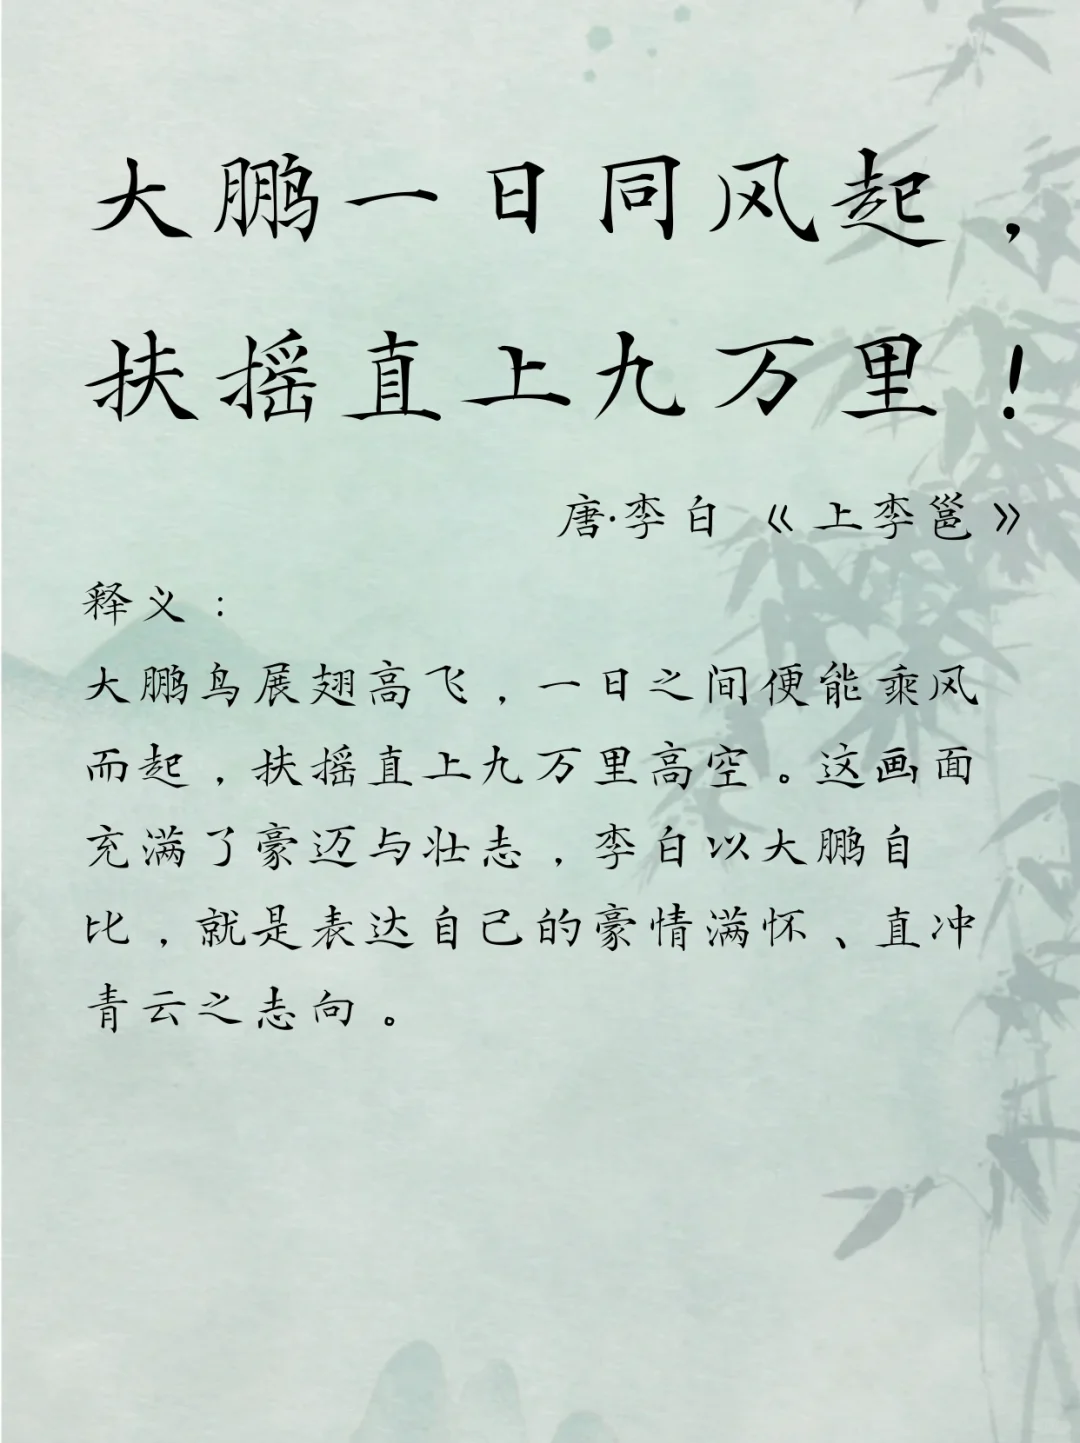 大鹏一日同风起，
扶摇直上九万里！
唐·李白《上李邕》
释义：
大鹏鸟展翅高飞，一日之间便能乘风
而起，扶摇直上九万里高空。这画面
充满了豪迈与壮志，李白以大鹏自
比，就是表达自己的豪情满怀、直冲
青云之志向。